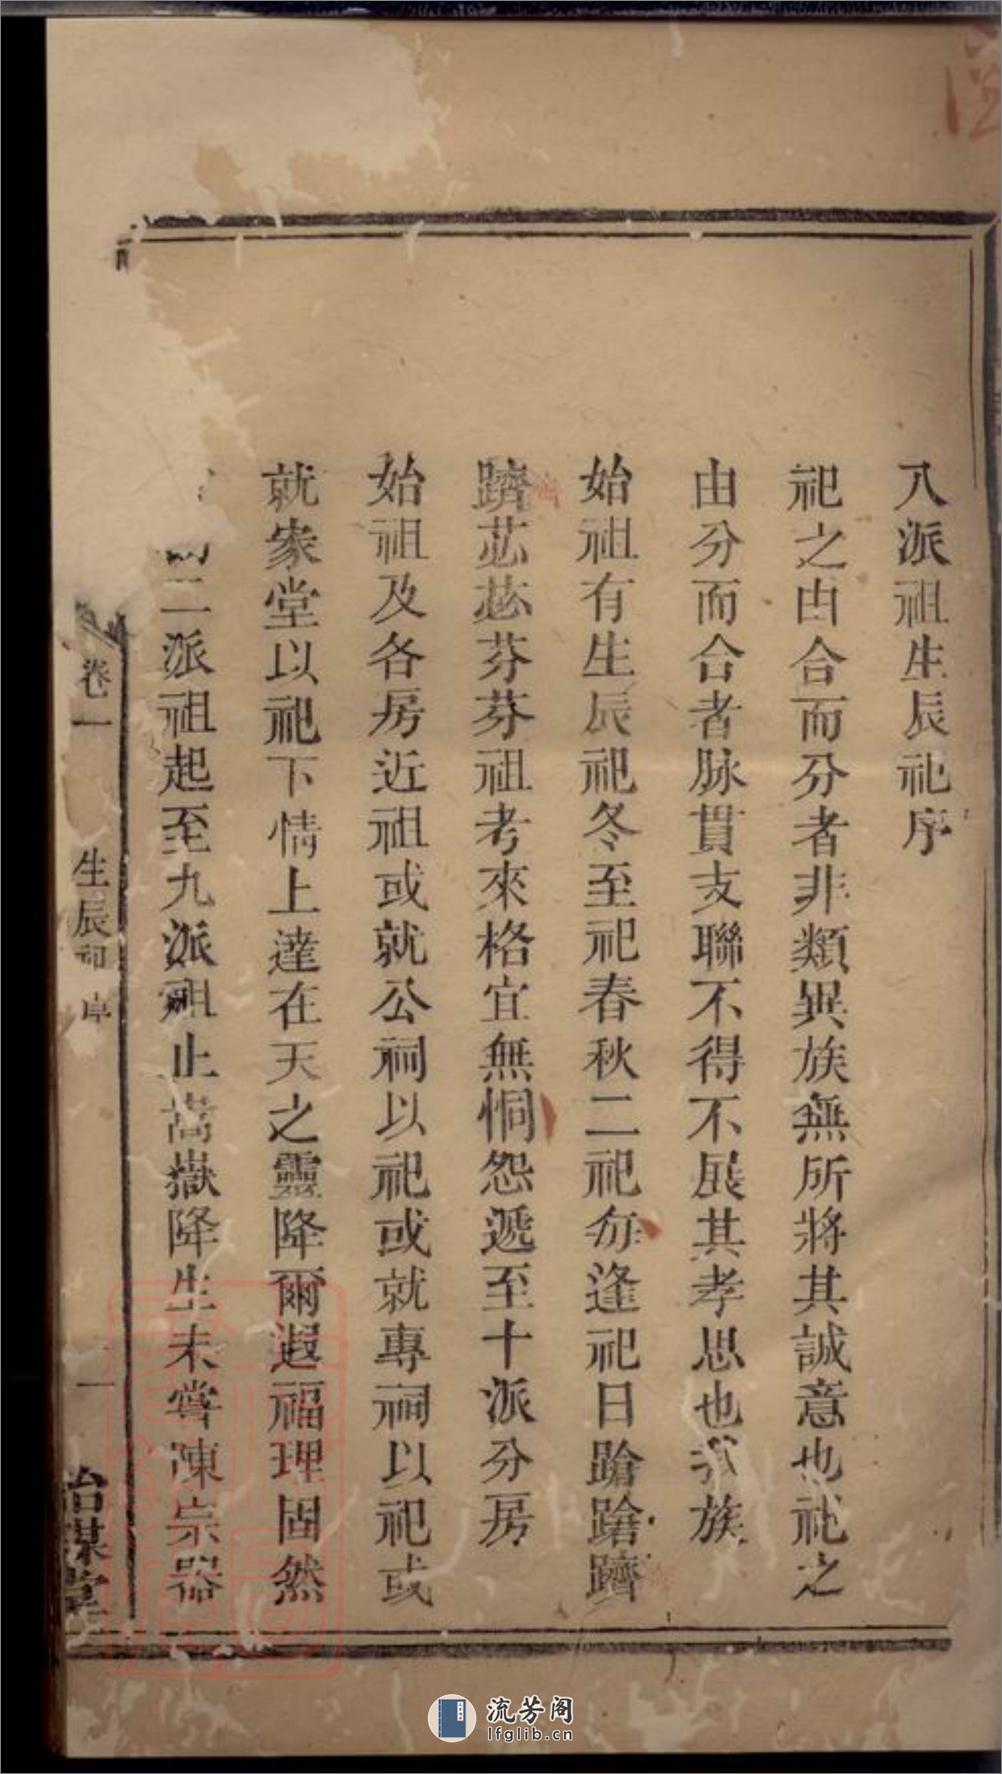 八派祖生辰祀序
祀之由合而分者非類異族無所將其誠意也祀之
由分而合者脉貫支聯不得不展其孝思也我族
始祖有生辰祀冬至祀春秋二祀每逢祀日蹌蹌躋
躋苾苾芬芬祖考來格宜無恫怨遞至十派分房
始祖及各房近祖或就公祠以祀或就專祠以祀或
就家堂以祀下情上達在天之靈降爾遐福理固然
二派祖起至九派祖止嵩嶽降生未嘗陳宗器
卷一
生辰祀序
一
詒謀堂
流芳阁
lfglib.cn